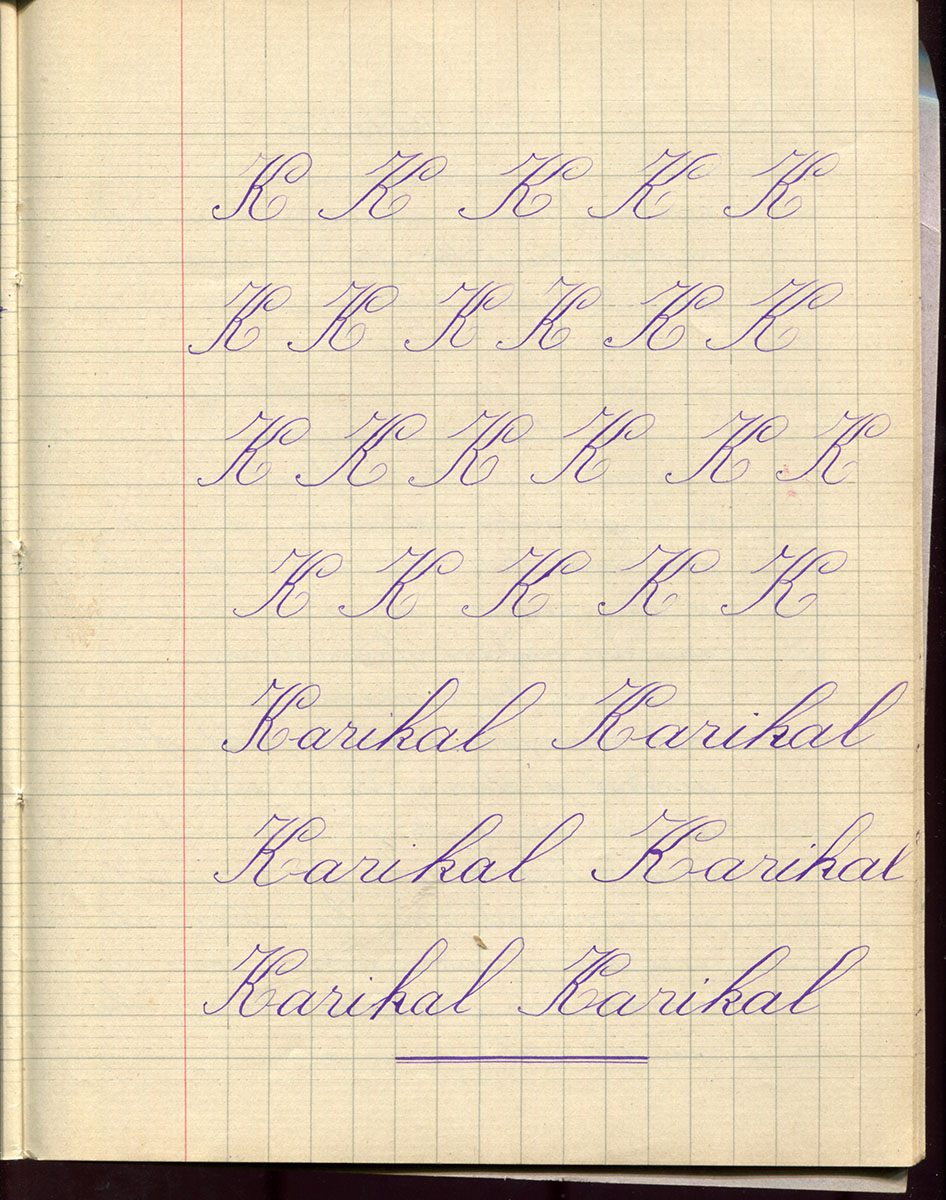 K K K K K
K K K K K K
K K K K K K
K K K K K
Karikal Karikal
Karikal Karikal
Karikal Karikal